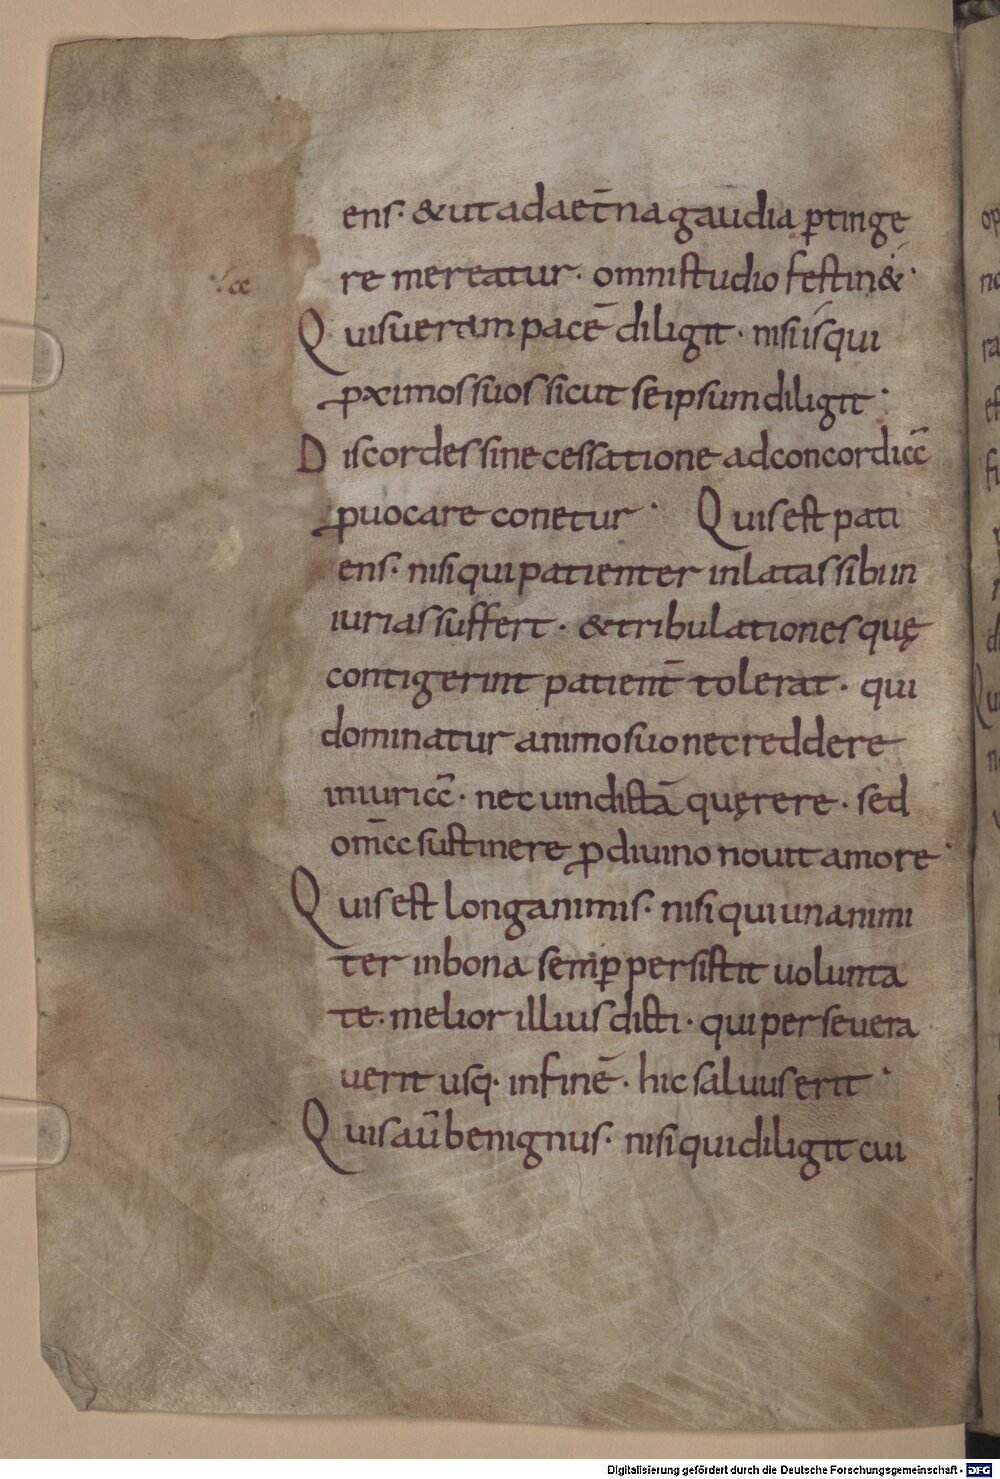 ens· & ut ad aet̄na gaudia ꝑtinge
re mereatur· omni studio festin&·
Quis ueram pacē diligit· nisi is qui
ꝓximos suos sicut se ipsum diligit·
Discordes sine cessatione ad concordiā
ꝓuocare conetur· Quis est pati
ens· nisi qui patienter inlatas sibi in
iurias suffert· & tribulationes quę
contigerint patient̄ tolerat· qui
dominatur animo suo nec reddere
iniuriā· nec uindictā quęrere· sed
om̄a sustinere ꝓ diuino nouit amore·
Quis est longanimis· nisi qui unanimi
ter in bona semꝑ persistit uolunta
te· melior illius dicti· qui perseuera
uerit usq· in finē· hic saluus erit·
Quis aū benignus· nisi qui diligit cui
Digitalisierung gefördert durch die Deutsche Forschungsgemeinschaft - DFG